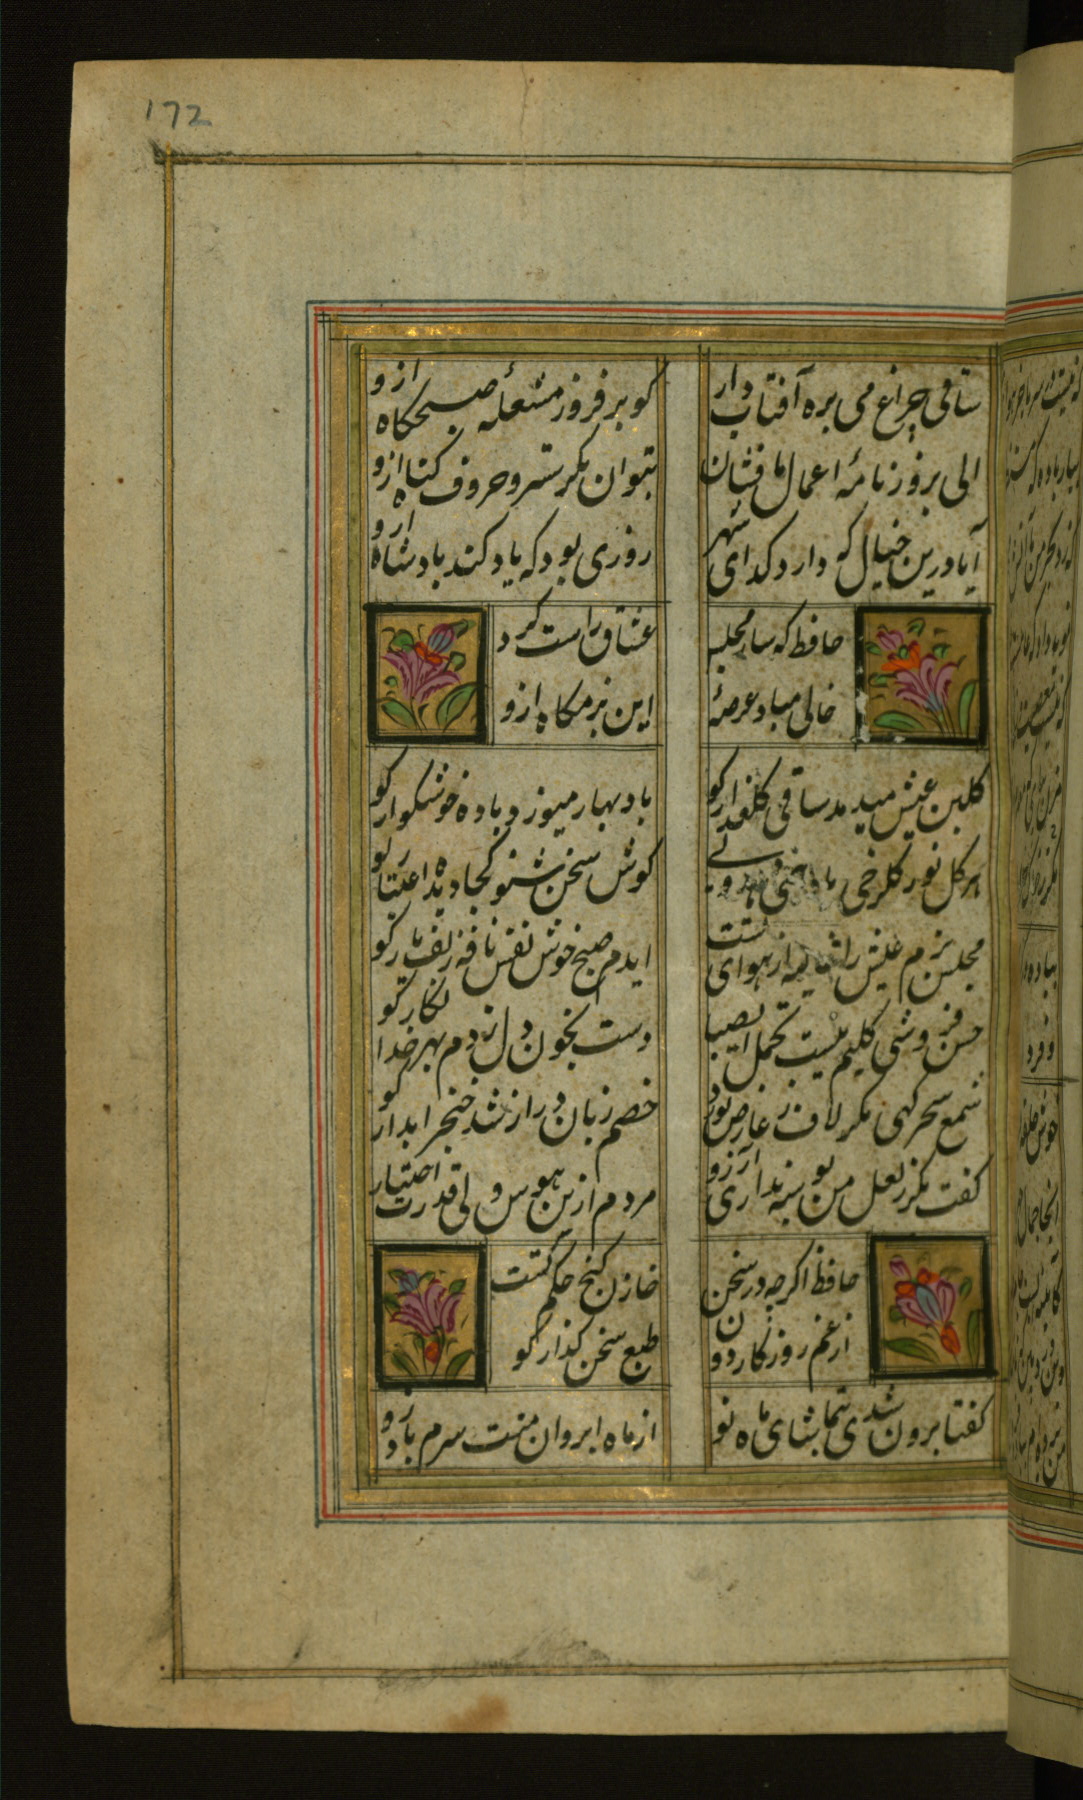 172
ساقی چراغ می بره آفتاب دار
کو بر فروز مشعلهٔ صبحکاه ازو
ابی بروزنامهٔ اعمال ما فشان
بتوان مکر سترد حروف کناه ازو
آیا درین خیال که دارد کدای شهر
روزی بود که یاد کند بادشاه ازو
حافظ که ساز مجلس
عشاق راست کرد
خالی مباد عرصهٔ
این بزمکاه ازو
کلبن عیش میدمد ساقی کلعذار کو
باد بهار میوزد باده خوشکوار کو
هر کل نو ز کلرخی یاد همی دهد ولی
کوش سخن شنو کجا دیده اعتبار کو
مجلس بزم عیش را غالیه نیست
ایدم صبح خوش نفس نافه زلف یار کو
حسن فروشی کلم نیست تحمل ایصبا
دست بخون دل زدم بهر خدا نکار کو
شمع سحرکهی مکر لاف ز عارض تو زد
خصم زبان دراز شد خنجر ابدار کو
کفت مکر ز لعل من بوسه نداری آرزو
مردم ازین هوس ولی قدرت اختیار کو
حافظ اکرچه در سخن
خازن کنج حکمتست
از غم روزکار دون
طبع سخن کذار کو
کفتا برون شدی بتماشای ماه نو
از ماه ابروان منت شرم باد رو